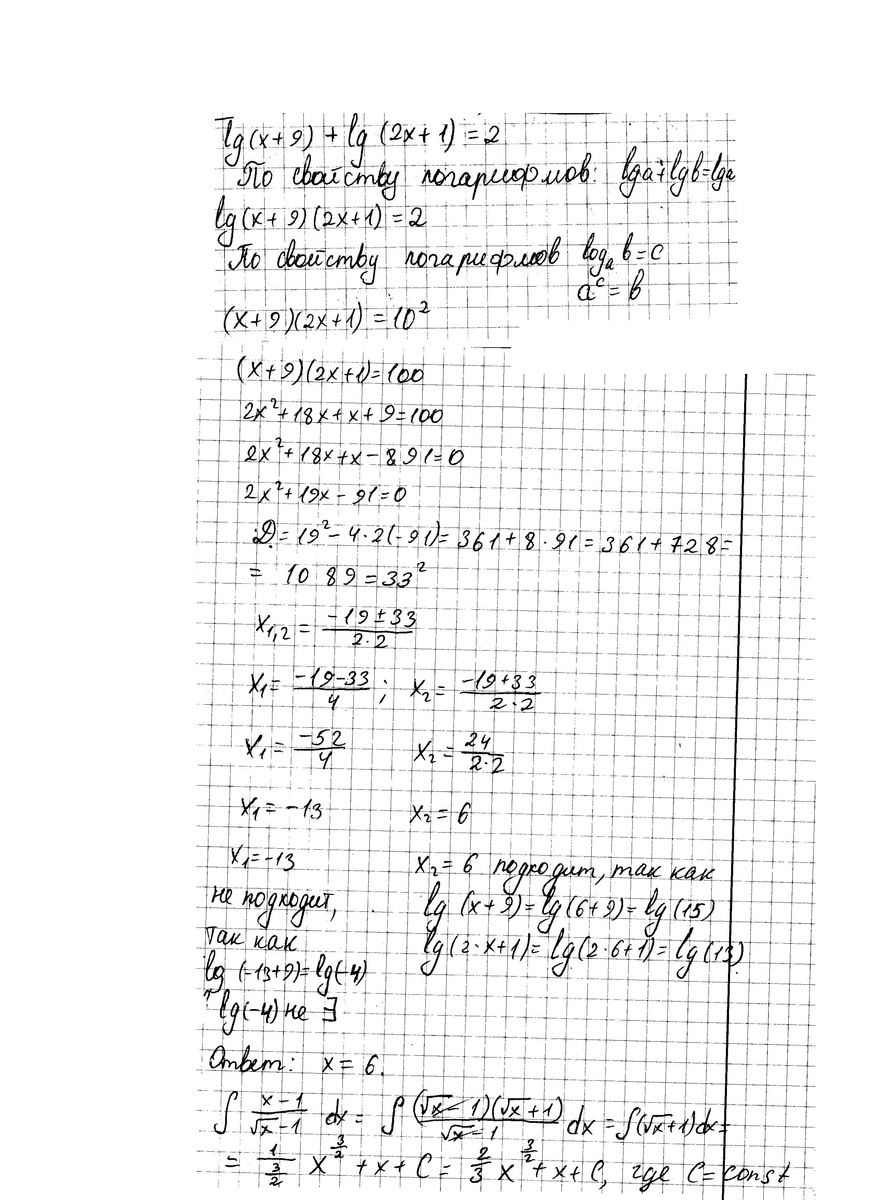 lg(x+9) + lg(2x+1) = 2
По свойству логарифмов: lga+lgb=lga
lg(x+9)(2x+1) = 2
По свойству логарифмов log_a b = c
a^c = b
(x+9)(2x+1) = 10²
(x+9)(2x+1)=100
2x²+18x+x+9=100
2x²+18x+x-891=0
2x²+19x-91=0
D = 19²-4·2(-91) = 361+8·91 = 361+728=
= 1089 = 33²
x_{1,2} = (-19±33)/(2·2)
x₁ = (-19-33)/4 ; x₂ = (-19+33)/(2·2)
x₁ = -52/4 x₂ = 24/(2·2)
x₁ = -13 x₂ = 6
x₁ = -13 x₂ = 6 подходит, так как
не подходит, lg(x+9) = lg(6+9) = lg(15)
так как lg(2·x+1) = lg(2·6+1) = lg(13)
lg(-13+9)=lg(-4)
lg(-4) не ∃
Ответ: x = 6.
∫ (x-1)/(√x-1) dx = ∫ (√x-1)(√x+1)/(√x-1) dx = ∫(√x+1)dx=
= 1/(3/2) x^{3/2} + x + C = 2/3 x^{3/2} + x + C, где C = const